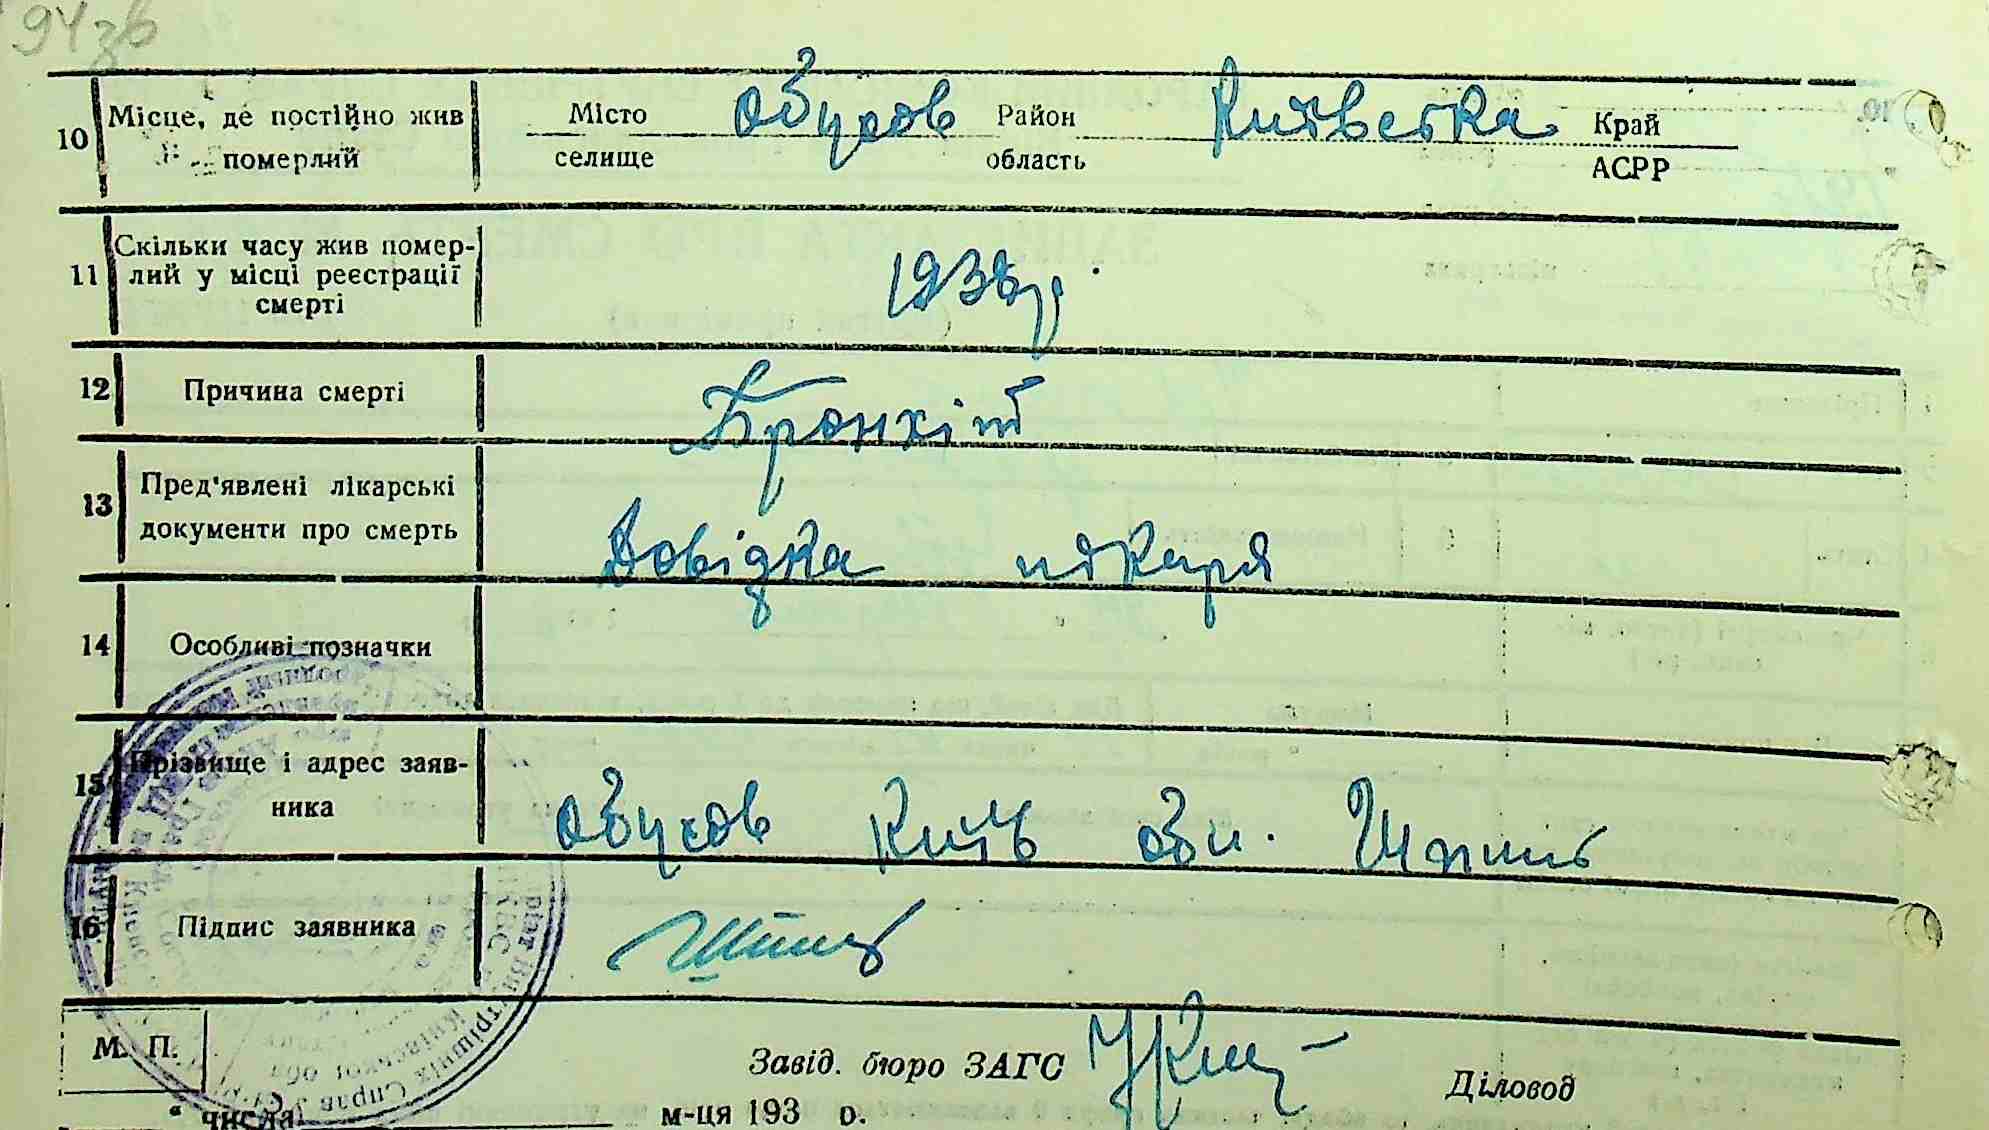 94зв
10 Місце, де постійно жив Місто Обухов Район Київська Край
померлий селище область АСРР
11 Скільки часу жив помер-
лий у місці реєстрації
смерті
1938 р.
12 Причина смерті Бронхіт
13 Пред'явлені лікарські
документи про смерть
Довідка лікаря
14 Особливі позначки
15 Прізвище і адрес заяв-
ника
Обухов Київ обл.
16 Підпис заявника
М. П.
Завід. бюро ЗАГС Діловод
" числа м-ця 193 о.
Внутрішніх Справ
Київської обл